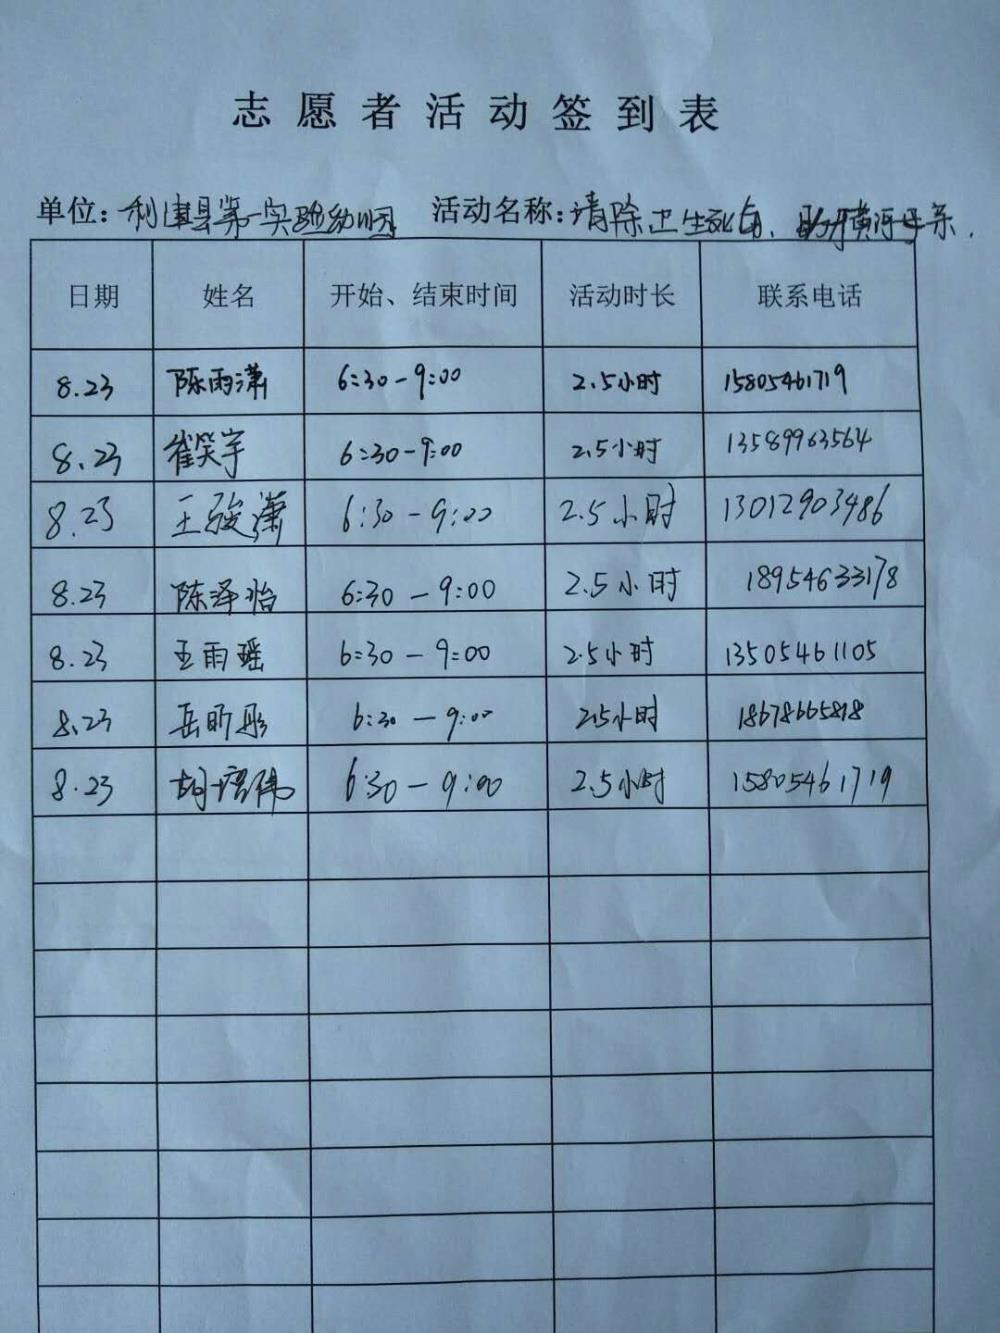 志愿者活动签到表
单位:利津县第一实验幼儿园 活动名称:清除卫生死角、
日期 姓名 开始、结束时间 活动时长 联系电话
8.23 陈雨潇 6:30-9:00 2.5小时 15805461719
8.23 崔笑宇 6:30-9:00 2.5小时 13589963564
8.23 王骏潇 6:30-9:00 2.5小时 13012903486
8.23 陈泽怡 6:30-9:00 2.5小时 18954633178
8.23 王雨瑶 6:30-9:00 2.5小时 13505461105
8.23 岳昕彤 6:30-9:00 2.5小时 18678665818
8.23 胡培伟 6:30-9:00 2.5小时 15805461719